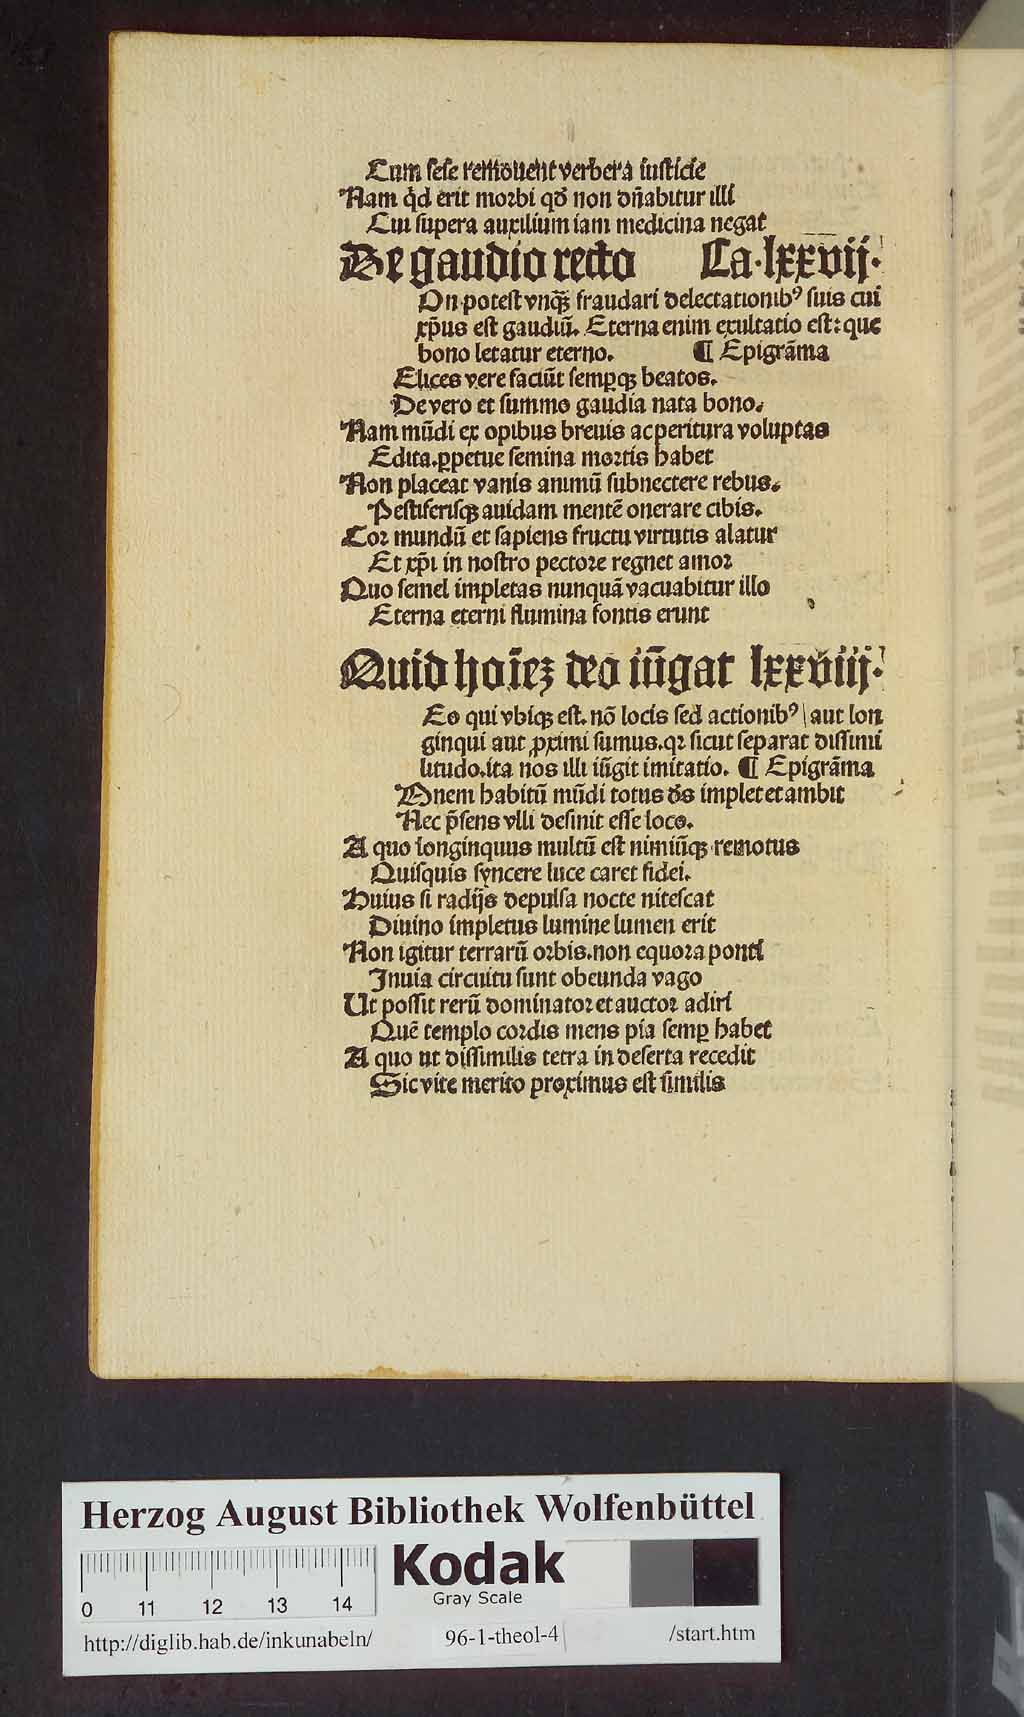 Cum sese remouent verbera iusticie
Nam qͥd erit morbi qđ non dn̄abitur illi
Cui supera auxilium iam medicina negat
De gaudio recto Ca·lxxvij·
On potest vnqᷓȝ fraudari delectationibꝰ suis cui
xp̄us est gaudiū. Eterna enim exultatio est: que
bono letatur eterno. ¶ Epigrāma
Elices vere faciūt semꝑqȝ beatos.
De vero et summo gaudia nata bono.
Nam mūdi ex opibus breuis ac peritura voluptas
Edita.ꝑpetue semina mortis habet
Non placeat vanis animū subnectere rebus.
Pestiferisqȝ auidam mentē onerare cibis.
Cor mundū et sapiens fructu virtutis alatur
Et xp̄i in nostro pectore regnet amor
Quo semel impletas nunquā vacuabitur illo
Eterna eterni flumina fontis erunt
Quid hoīeȝ deo iūgat lxxviij·
Eo qui vbiqȝ est. nō locis sed actionibꝰ aut lon
ginqui aut ꝓximi sumus.qꝛ sicut separat dissimi
litudo.ita nos illi iūgit imitatio. ¶ Epigrāma
Mnem habitū mūdi totus d̄s implet et ambit
Nec p̄sens vlli desinit esse loco.
A quo longinquus multū est nimiūqȝ remotus
Quisquis syncere luce caret fidei.
Huius si radijs depulsa nocte nitescat
Diuino impletus lumine lumen erit
Non igitur terrarū orbis.non equora ponti
Inuia circuitu sunt obeunda vago
Ut possit rerū dominator et auctor adiri
Quē templo cordis mens pia semꝑ habet
A quo ut dissimilis tetra in deserta recedit
Sic vite merito proximus est similis
Herzog August Bibliothek Wolfenbüttel
Kodak
Gray Scale
0 11 12 13 14
http://diglib.hab.de/inkunabeln/ 96-1-theol-4 /start.htm